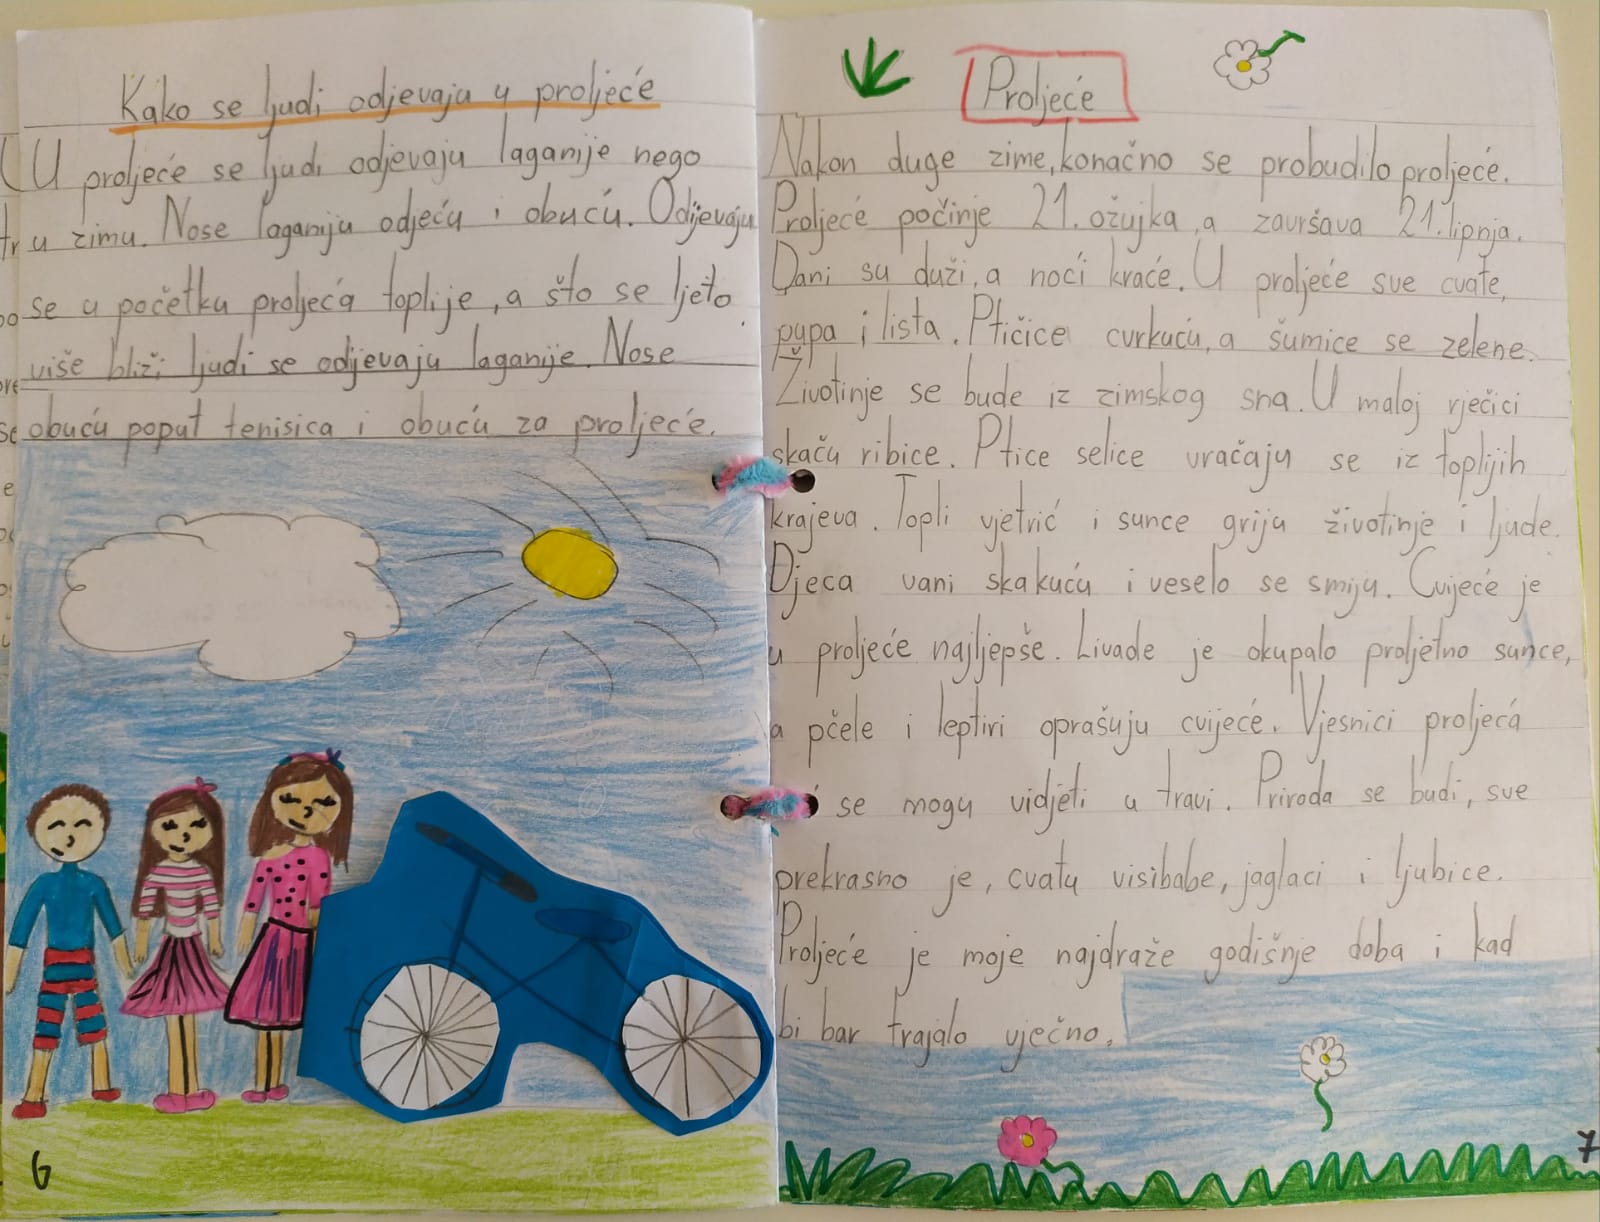 Kako se ljudi odjevaju u proljeće
U proljeće se ljudi odjevaju laganije nego
u zimu. Nose laganiju odjeću i obuću. Odijevaju
se u početku proljeća toplije, a što se ljeto
više bliži ljudi se odijevaju laganije. Nose
obuću poput tenisica i obuću za proljeće.
6
Proljeće
Nakon duge zime, konačno se probudilo proljeće.
Proljeće počinje 21. ožujka, a završava 21. lipnja.
Dani su duži, a noći kraće. U proljeće sve cvate,
pupa i lista. Ptičice cvrkuću, a šumice se zelene.
Životinje se bude iz zimskog sna. U maloj rječici
skaču ribice. Ptice selice vračaju se iz toplijih
krajeva. Topli vjetrić i sunce griju životinje i ljude.
Djeca vani skakuću i veselo se smiju. Cvijeće je
u proljeće najljepše. Livade je okupalo proljetno sunce,
a pčele i leptiri oprašuju cvijeće. Vjesnici proljeća
se mogu vidjeti u travi. Priroda se budi, sve
prekrasno je, cvatu visibabe, jaglaci i ljubice.
Proljeće je moje najdraže godišnje doba i kad
bi bar trajalo vječno.
7